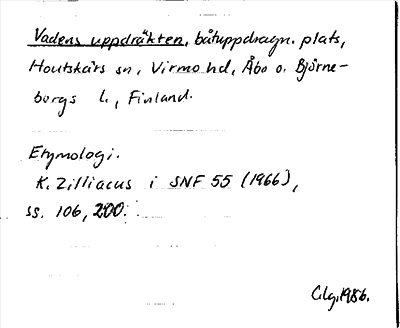 Vadens uppdräkten, båtuppdragn. plats,
Houtskärs sn, Virmo hd, Åbo o. Björne-
borgs l., Finland.
Etymologi.
K. Zilliacus i SNF 55 (1966),
ss. 106, 200.
Clg. 1986.